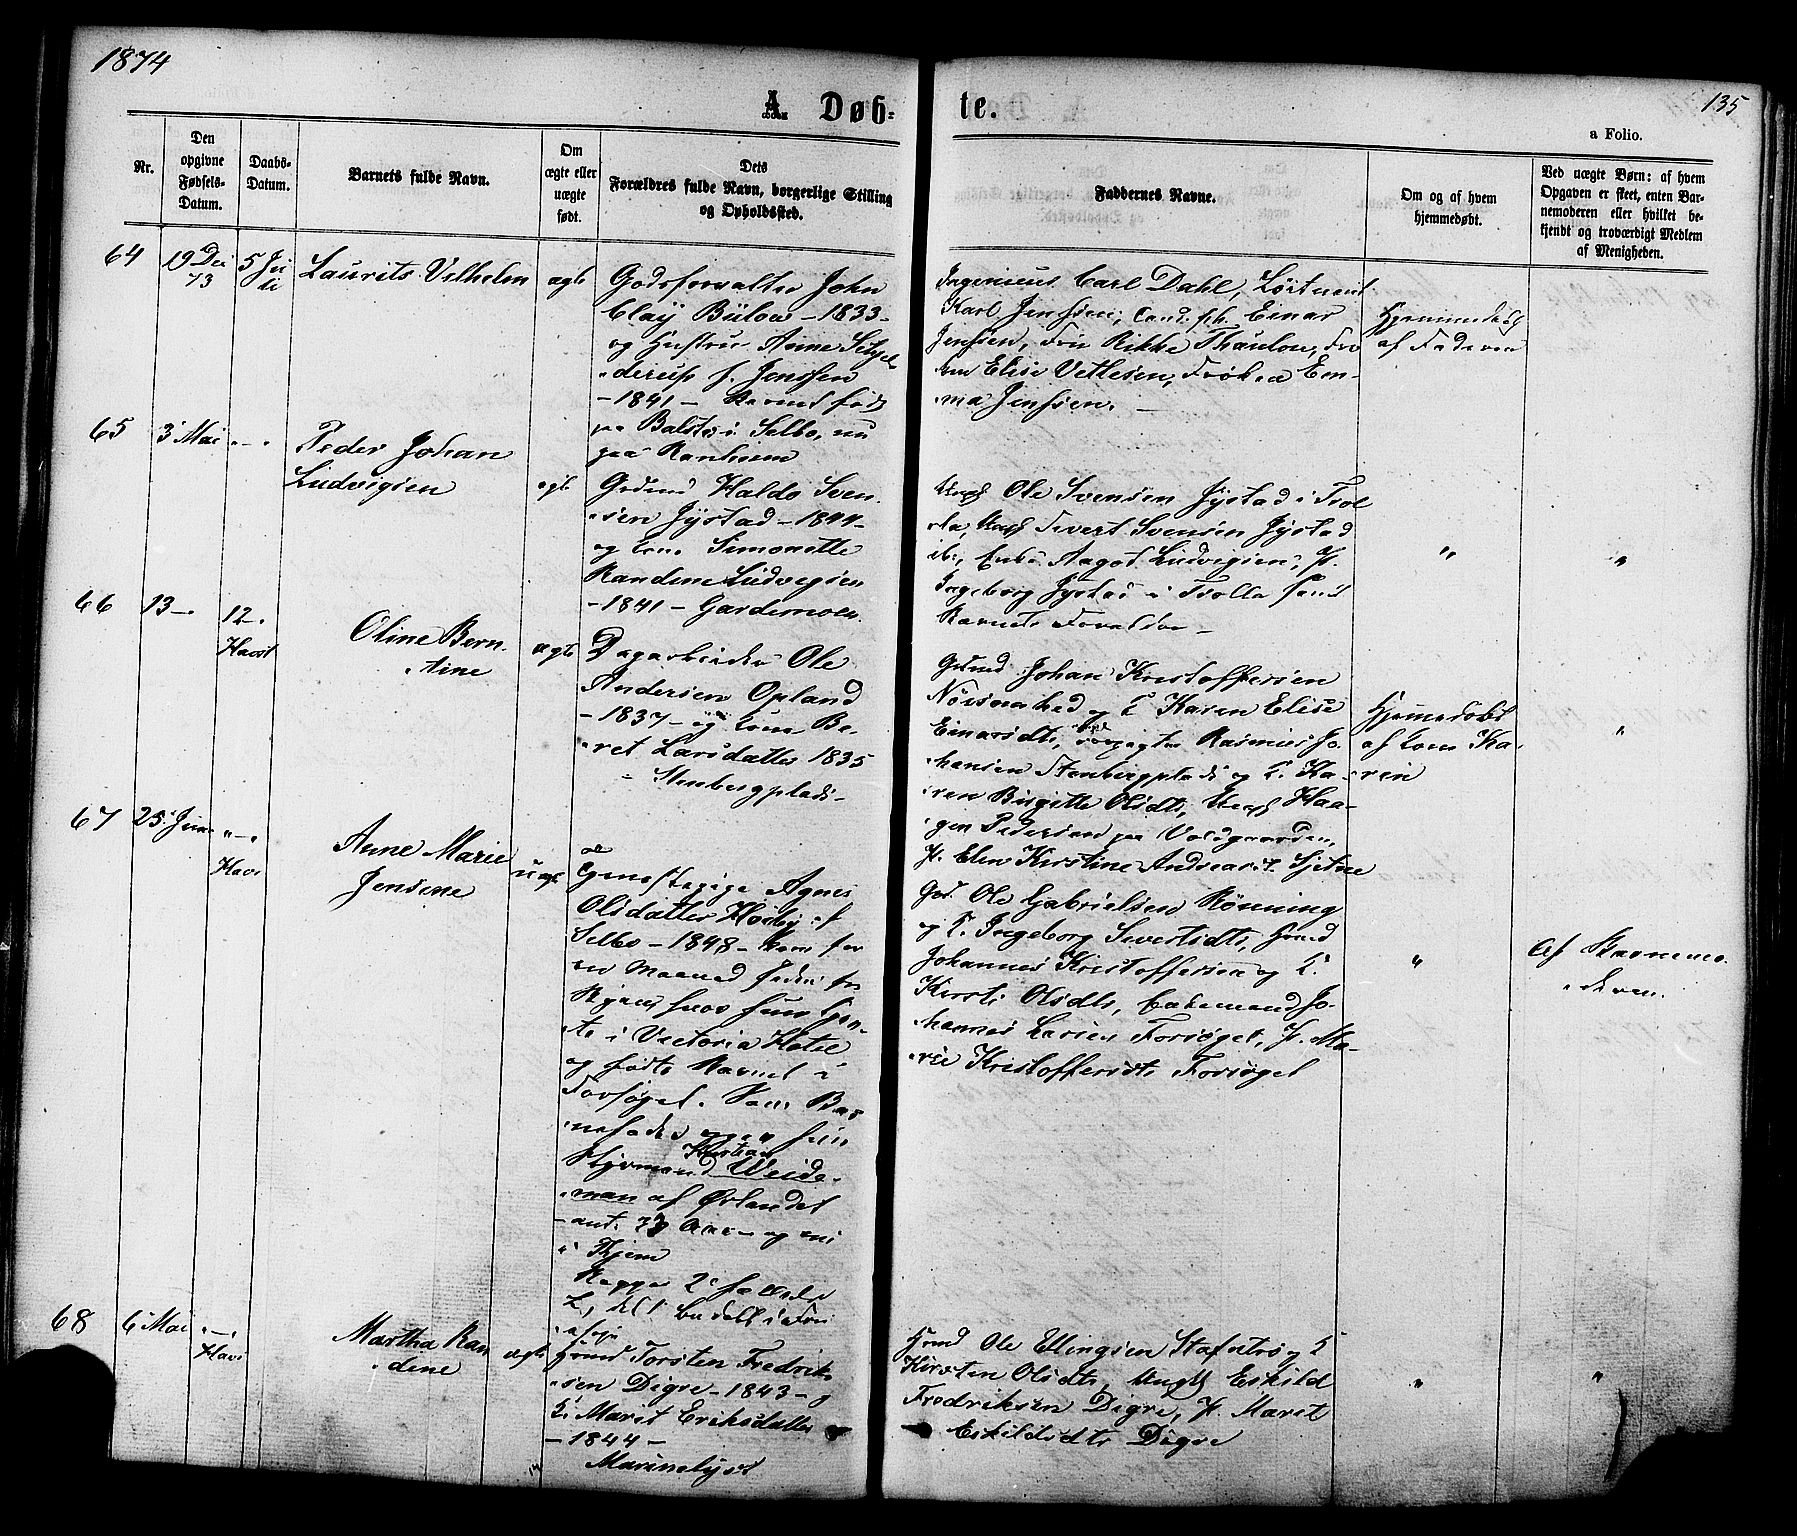 1874
135
A Døb-
te.
a Folio.
Nr.
Den
opgivne
Fødsels-
Datum.
Daabs-
Datum.
Barnets fulde Navn.
Om
ægte eller
uægte
født.
Dets
Forældres fulde Navn, borgerlige Stilling
og Opholdssted.
Faddernes Navne.
Om og af hvem
hjemmedøbt.
Ved uægte Børn: af hvem
Opgaven er skeet, enten Bar-
nemoderen eller hvilket be-
kjendt og troværdigt Medlem
af Menigheden.
64
19 Dec
73
5 Juli
Laurits Vilhelm
ægte
Godsforvalter John
Clay Bülow - 1833 -
og Hustru Anne Schjel
derup f. Jenssen
- 1841 - Barnet født
paa Balstø i Selbo, nu
paa Ranheim
Ingenieur Carl Dahl, Löitnant
Karl Jenssen, Cand. ph. Einar
Jenssen, Fru Rikke Thaulow, Frø
ken Elise Vetlesen, Frøken Em-
ma Jenssen.
Hjemmedøbt
af Faderen
65
3 Mai
Peder Johan
Ludvigsen
ægte
Grdmd Haldo Sven-
sen Jystad - 1844 -
og Kone Simonette
Randine Ludvigsen
- 1841 - Gardemoen
Ungk Ole Svensen Jystad i Trol
la, Ungk Sivert Svensen Jystad
ib., Enke Aagot Ludvigsen, P.
Ingeborg Jystad i Trolla samt
Barnets Forældre -
66
13 -
12 -
Havst
Oline Bern
tine
ægte
Dagarbeider Ole
Andersen Opland
- 1837 - og Kone Be-
ret Larsdatter 1835
- Stenbergplads -
Grdmd Johan Kristoffersen
og K Karen Elise
Einarsdtr, Rasmus Jo-
hansen Stenbergplads og K. Ka-
ren Birgitte Olsdtr, Ungk Haa-
gen Pedersen paa Voldgaarden,
P. Elen Kirstine Andreasdt. Sjetne
Hjemmedøbt
af Kone Ka-
ren
67
25 Juni
Havs
Anne Marie
Jensine
uægte
Agnes
Olsdatter af
Selbo - 1848 - kom for
en Maaned siden fra
Byen, hvor hun tjen-
te i Victoria Hotel
og fødte Barnet i
Forsøget. Som Bar
nefader opgav hun
Styrmand Kristian Weide-
man af Ørlandet
i Hjem
Begge 2
Grd. Ole Gabrielsen Rønning
og K. Ingeborg Sivertsdtr, Grmd
Johannes Kristoffersen og K.
Kirsti Olsdtr, Johannes Larsen Forsøget, P. Ma-
rie Kristoffersdtr Forsøget
Af Barnemo-
deren.
68
6 Mai
Havs
Martha Ran
dine
ægte
Grmd Torsten Fredrik
sen Digre - 1843 - og
K. Marit Eriksdatter
- 1844 -
Marinelyst
Grmd Ole Ellingsen og K
Kirsten Olsdtr, Ungk Eskild
Fredriksen Digre, P. Marit
Eskildsdtr Digre